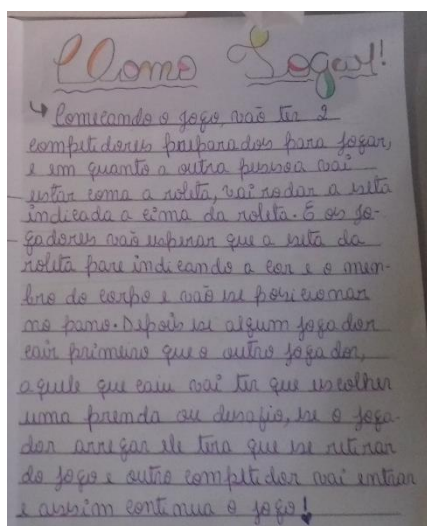 Como Jogar!
↳ Começando o jogo, vão ter 2
competidores preparados para jogar,
e em quanto a outra pessoa vai
estar coma a roleta, vai rodar a seta
indicada a cima da roleta. E os jo-
gadores vão esperar que a seta da
roleta pare indicando a cor e o mem-
bro do corpo e vão se posicionar
no pano. Depois se algum jogador
cair primeiro que o outro jogador,
aquele que caiu vai ter que escolher
uma prenda ou desafio, se o joga-
dor arregar ele tera que se retirar
do jogo e outro competidor vai entrar
e assim continua o jogo!